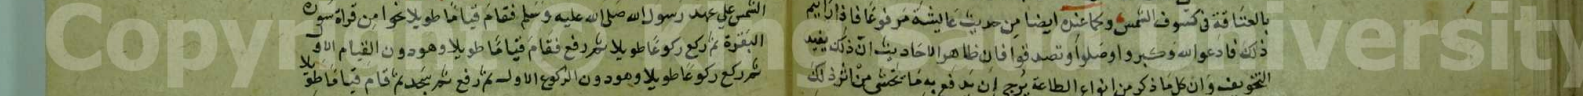 بالعتاقة في كسوف الشمس وكما عنده ايضا من حديث عايشة مرفوعا فاذا رايتم
ذلك فادعوا الله وكبروا وصلوا وتصدقوا فان ظاهر الاحاديث ان ذلك يفيد
التخويف وان كل ما ذكر من انواع الطاعة يرجى ان يدفع به ما يخشى من اثر ذلك
الشمس على عهد رسول الله صلى الله عليه وسلم فقام قياما طويلا نحوا من قراة سورة
البقرة ثم ركع ركوعا طويلا ثم رفع فقام قياما طويلا وهو دون القيام الاول
ثم ركع ركوعا طويلا وهو دون الركوع الاول ثم رفع ثم سجد ثم قام قياما طويلا